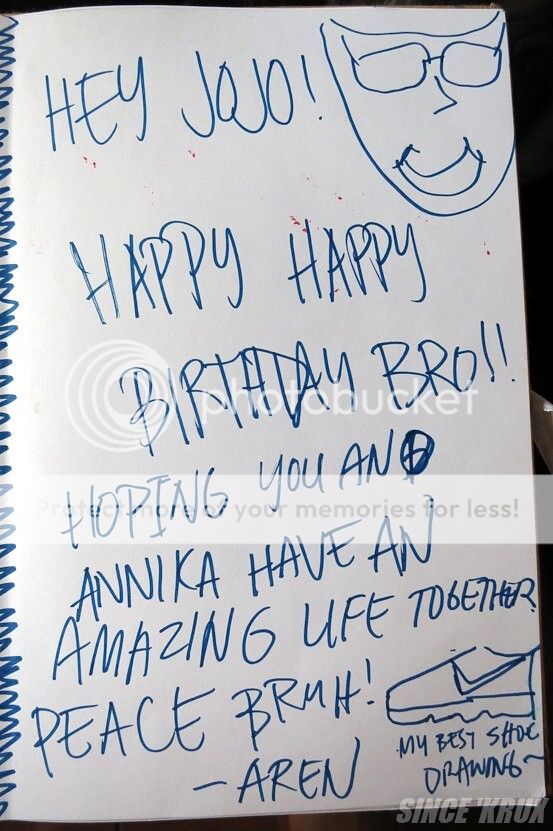 HEY JOJO!
HAPPY HAPPY
BIRTHDAY BRO!!
photobucket
HOPING YOU AND
Protect more of your memories for less!
ANNIKA HAVE AN
AMAZING LIFE TOGETHER
PEACE BRUH!
MY BEST SHOE
DRAWING~
-AREN
SINCE 'KRUX